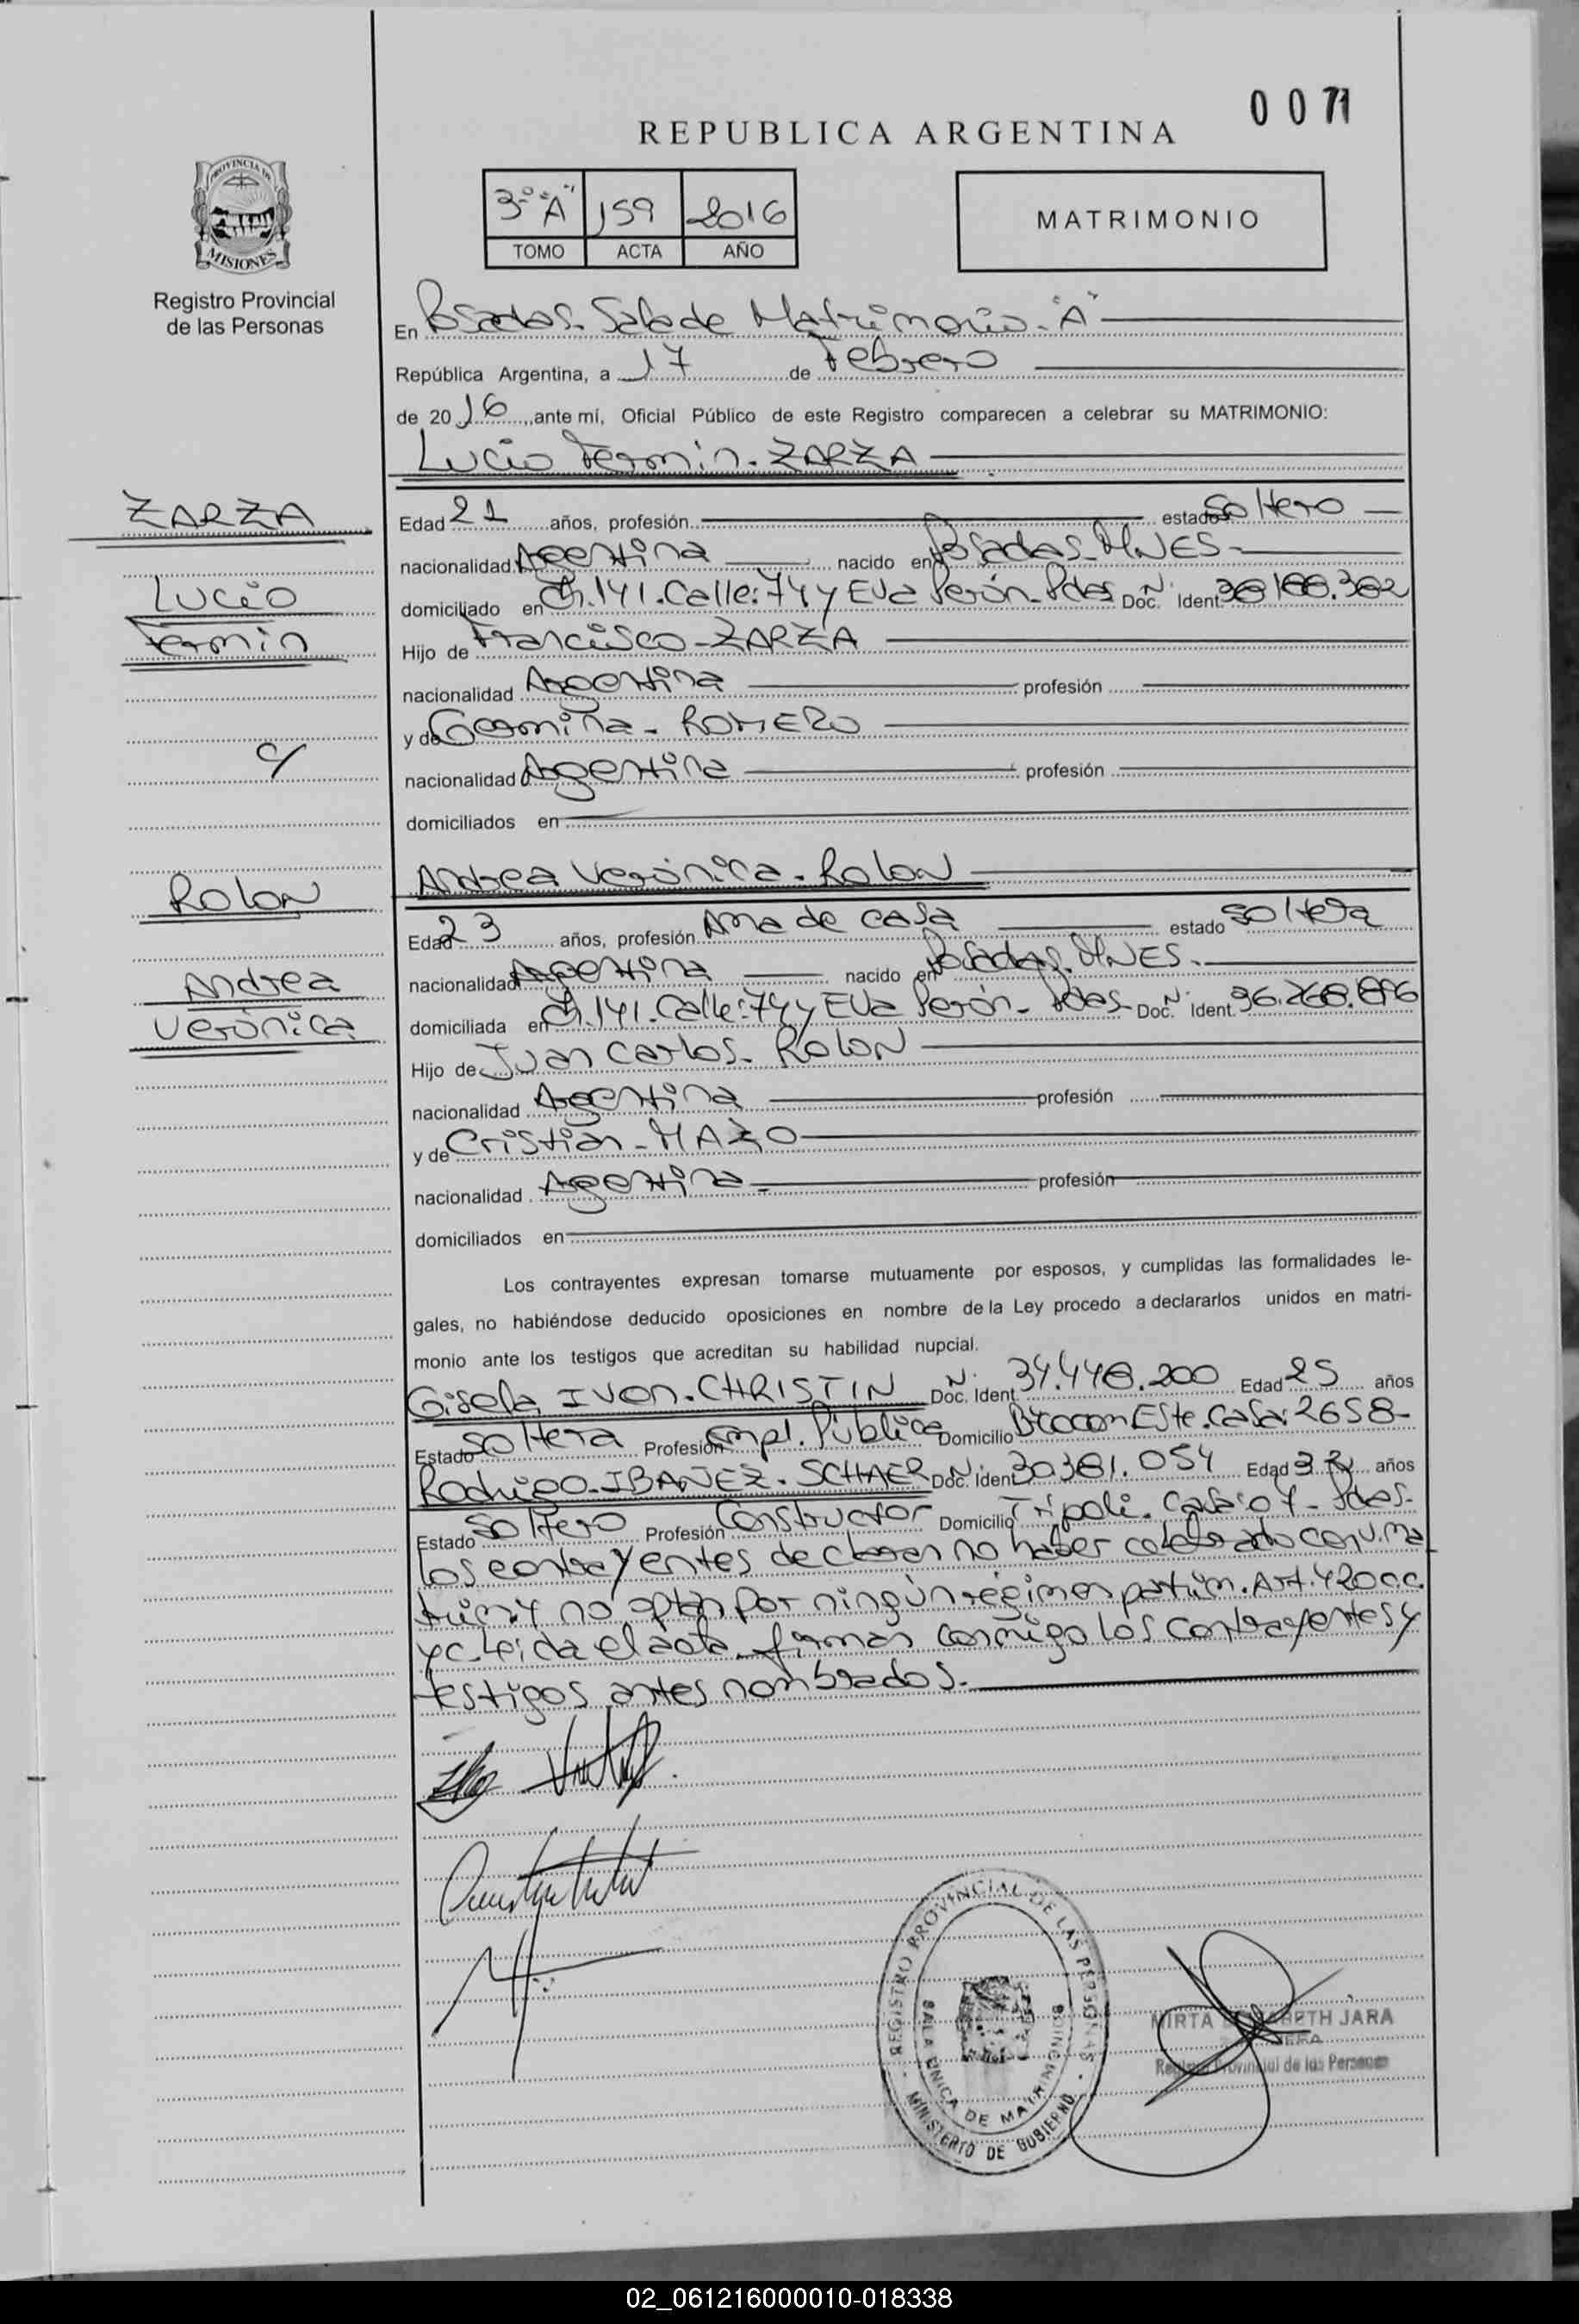 0071
REPUBLICA ARGENTINA
3º "A" 159 2016
TOMO ACTA AÑO
MATRIMONIO
PROVINCIA DE
MISIONES
Registro Provincial
de las Personas
En Posadas. Sala de Matrimonio - "A"
República Argentina, a 17 de Febrero
de 2016, ante mí, Oficial Público de este Registro comparecen a celebrar su MATRIMONIO:
Lucio Fermin. ZARZA
ZARZA
Lucio
Fermin
c/
Rolon
Andrea
Verónica
Edad 21 años, profesión estado Soltero
nacionalidad Argentina nacido en Posadas. MNES.
domiciliado en Ch.141. Calle: 74 y Eva Perón. Pdas Doc. Nº Ident.
Hijo de Francisco - ZARZA
nacionalidad Argentina profesión
y de - ROMERO
nacionalidad Argentina profesión
domiciliados en
Andrea Verónica. Rolon
Edad 23 años, profesión Ama de casa estado Soltera
nacionalidad Argentina nacido en Posadas. MNES.
domiciliada en Ch.141. Calle: 74 y Eva Perón. Pdas. Doc. Nº Ident.
Hijo de Juan Carlos. Rolon
nacionalidad Argentina profesión
y de Cristian - MAZO
nacionalidad Argentina profesión
domiciliados en
Los contrayentes expresan tomarse mutuamente por esposos, y cumplidas las formalidades le-
gales, no habiéndose deducido oposiciones en nombre de la Ley procedo a declararlos unidos en matri-
monio ante los testigos que acreditan su habilidad nupcial.
Gisela Ivon. CHRISTIN Doc. Nº Ident. 34.448.200 Edad 25 años
Estado Soltera Profesión Empl. Pública Domicilio Este. Casa: 2658-
Rodrigo. IBAÑEZ. SCHAER Doc. Nº Ident. 30.381.054 Edad años
Estado Soltero Profesión Constructor Domicilio Tripoli. Casa: Pdas.
Los contrayentes declaran no haber celebrado conv. ma
trim. y no optan por ningún régimen patrim. Art. 420 C.C.
yc. Leida el acta firman conmigo los contrayentes y
testigos antes nombrados.
REGISTRO PROVINCIAL DE LAS PERSONAS
SALA UNICA DE MATRIMONIOS
MINISTERIO DE GOBIERNO
MIRTA JARA
Registro Provincial de las Personas
02_061216000010-018338